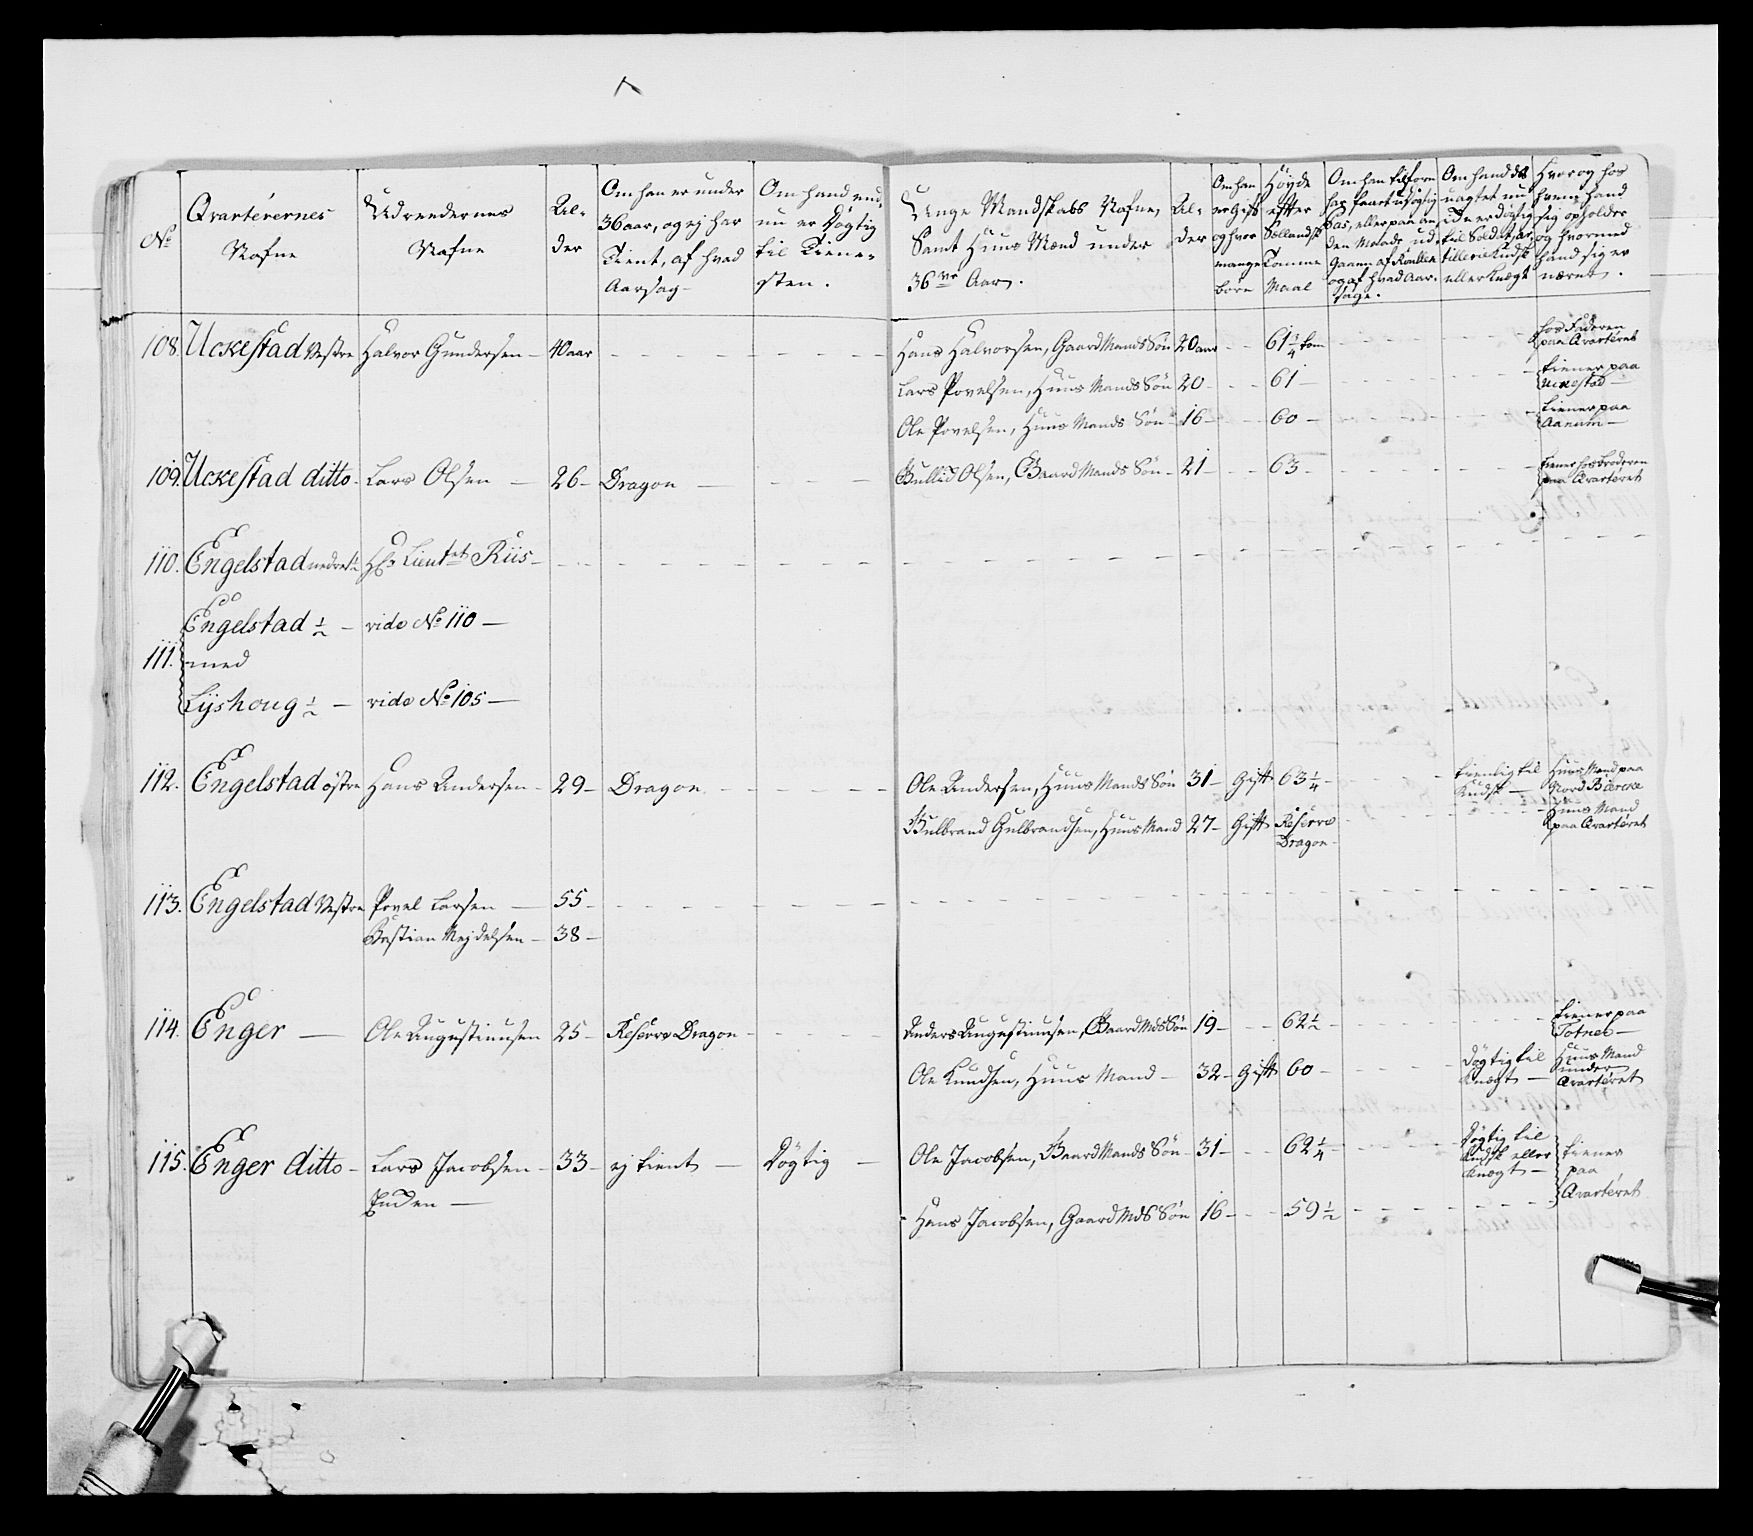 No
Qvarterernes
Nafne
Udreedernes
Nafne
Al-
der
Om han er under
36 aar, og ej har
Tient, af hvad
Aarsag
Om hand end-
nu er Døgtig
til Tiene-
sten.
Unge Mandskabs Nafne,
Samt Huus Mænd under
36ve Aar.
Al-
der
Om han
er Gift
og hvor
mange
børn
Høyde
efter
Sællandsk
Tomme
Maal
Om hand
Hvor og hos
hvem hand
sig opholder
og hvormed
hand sig er
nærer.
108. Uckestad Vestre Halvor Gundersen - 40 aar - - - Hans Halvorsen, Gaard Mands Søn 20 aar - - 61 1/4 tom - - hos Faderen
paa Qvarteret
Lars Povelsen, Huus Mands Søn 20 - - 61 - - tiener paa
Uckestad
Ole Povelsen, Huus Mands Søn 16 - - 60 - - tiener paa
Aanum
109. Uckestad ditto - Lars Olsen - 26 - Dragon - - - Gullich Olsen, Gaard Mands Søn - 21 - - 63 - - tiener hos broderen
paa Qvarteret
110. Engelstad nedre 1/2 Hr Lieutnt Riis - - -
Engelstad 1/2 - vide No 110 -
111. med
Lijshoug 1/2 - vide No 105 -
112. Engelstad østre Hans Andersen - 29 - Dragon - - - Ole Andersen, Huus Mands Søn 31 - Gift 63 1/4 - - tienlig til Huus Mand paa
Kudsk - Nord Biercke
Gulbrand Gulbrandsen, Huus Mand 27 - Gift Reserve - - Huus Mand
Dragon - paa Qvarteret
113. Engelstad Vestre Povel Larsen - 55 - - -
Bastian Mejdelsen - 38 -
114. Enger - Ole Augustinusen 25 - Reserve Dragon - - - Anders Augustinusen, Gaard Mds Søn 19 - - 62 1/2 - - tiener paa
Totnes -
Ole Knudsen, Huus Mand - 32 - Gift 60 - - Døgtig til Huus Mand
Knægt - under
Qvarteret
115. Enger ditto - Lars Jacobsen - 33 - ej tient - Døgtig - Ole Jacobsen, Gaard Mands Søn - 31 - - 62 1/4 - - Døgtig til
Kudsk eller tiener
Knægt - paa
Enden - Qvarteret
Hans Jacobsen, Gaard Mds Søn 16 - - 59 1/2 - -